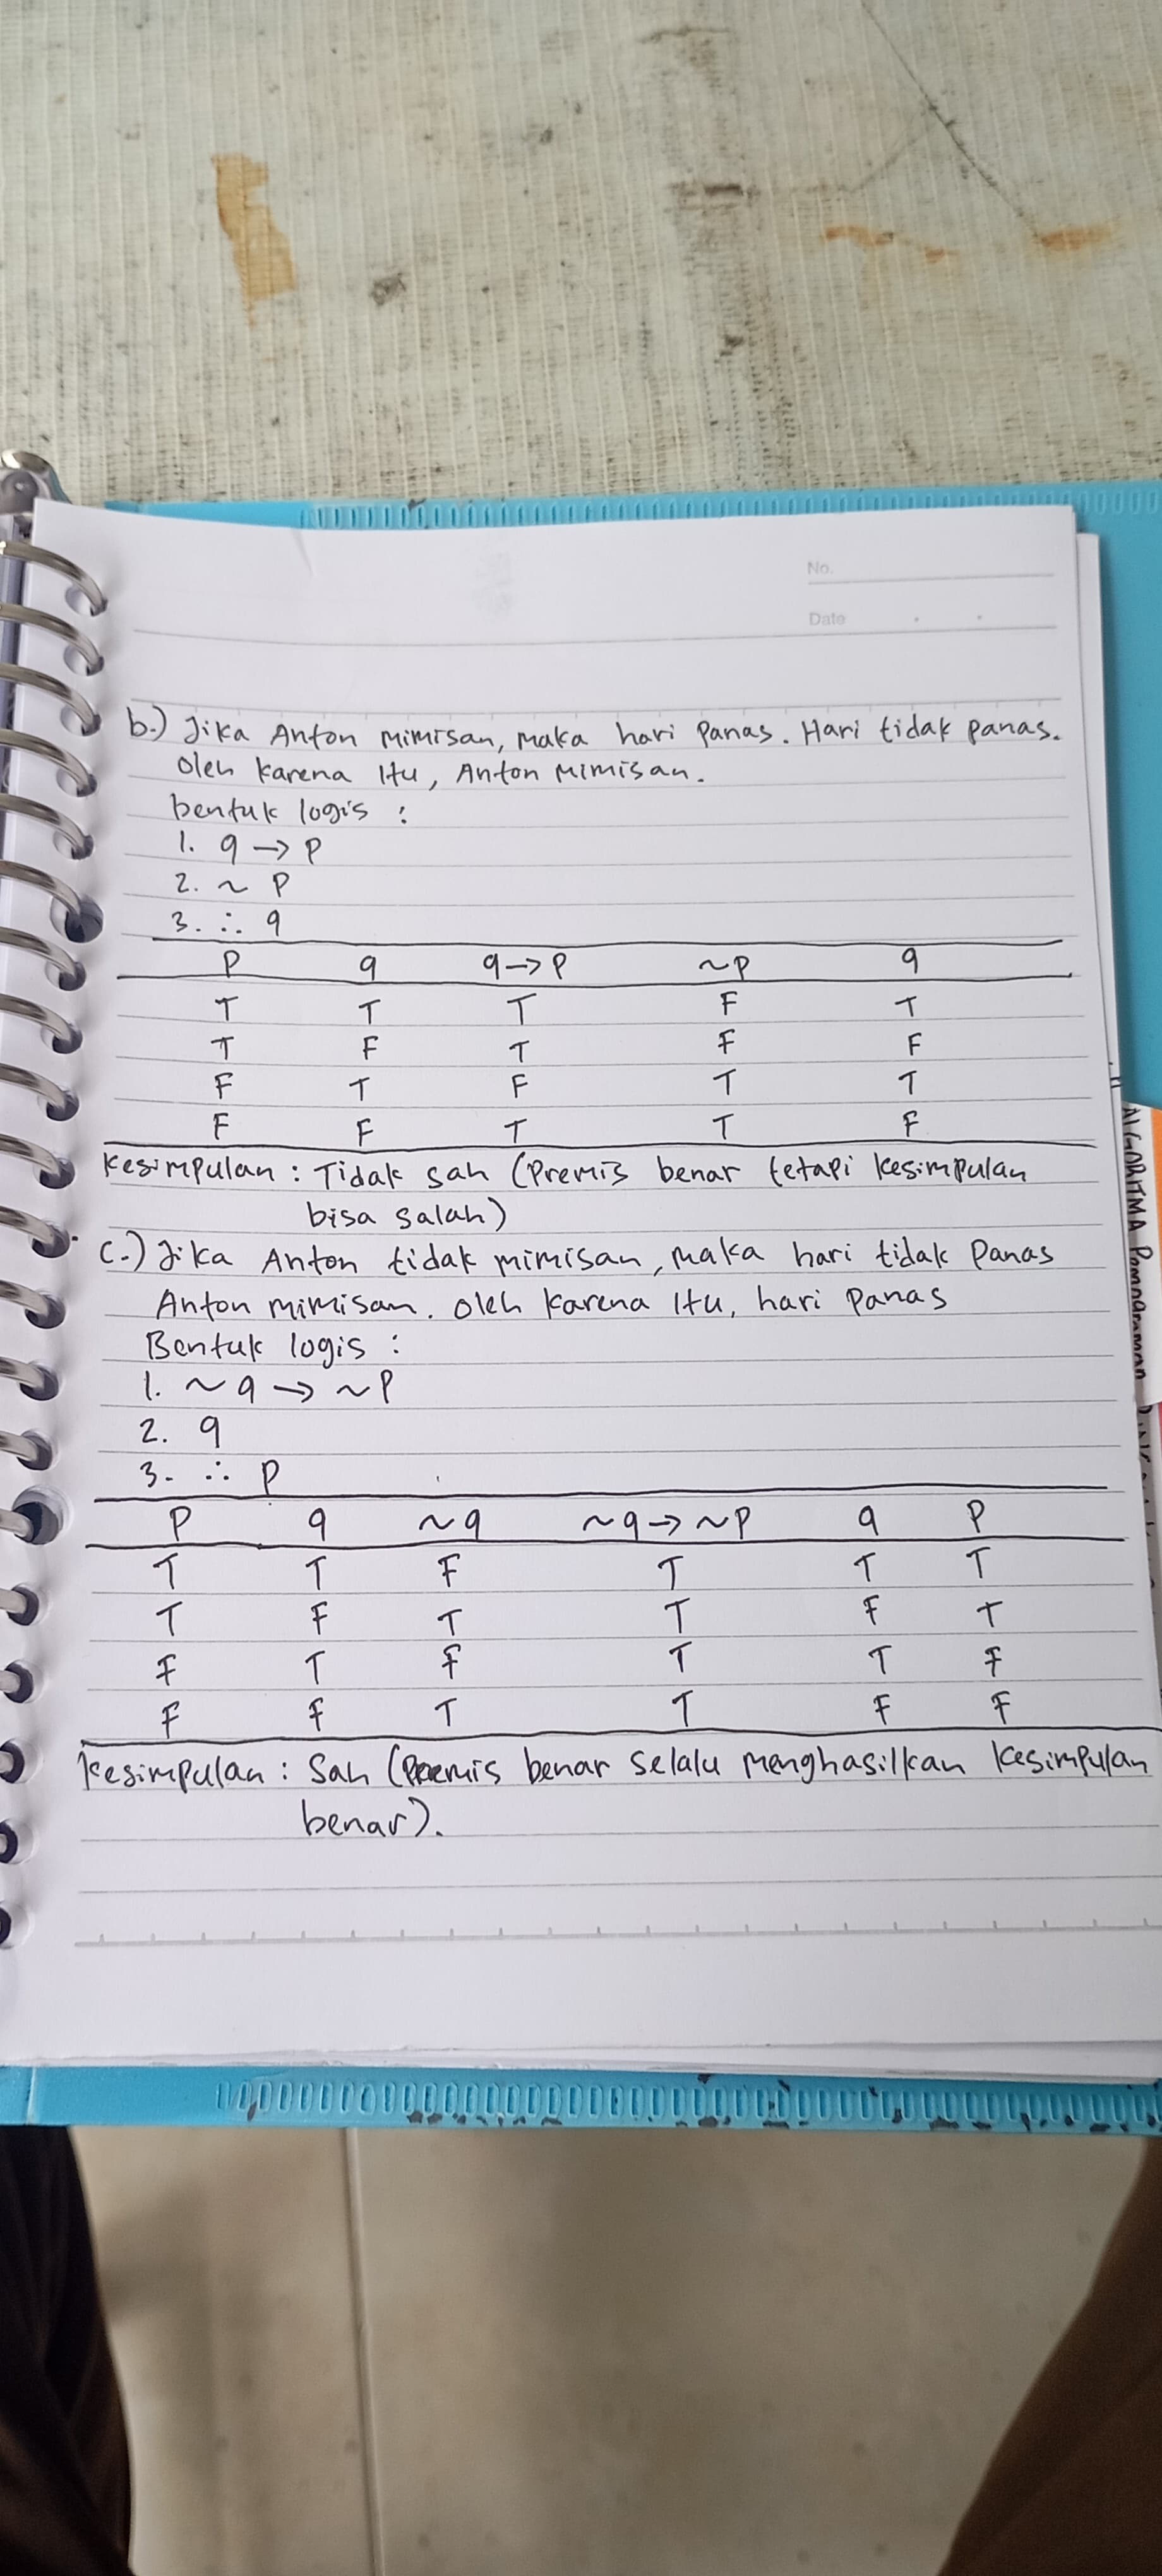 No.
Date
b.) Jika Anton mimisan, maka hari panas. Hari tidak panas.
oleh karena Itu, Anton Mimisan.
bentuk logis :
1. q → p
2. ~ p
3. ∴ q
P q q→p ~p q
T T T F T
T F T F F
F T F T T
F F T T F
Kesimpulan : Tidak sah (Premis benar tetapi kesimpulan
bisa salah)
C.) Jika Anton tidak mimisan, maka hari tidak Panas
Anton mimisan. oleh karena Itu, hari panas
Bentuk logis :
1. ~q → ~p
2. q
3. ∴ p
P q ~q ~q → ~p q p
T T F T T T
T F T T F T
F T F T T F
F F T T F F
Kesimpulan : Sah (Premis benar selalu menghasilkan kesimpulan
benar).
ALGORITMA